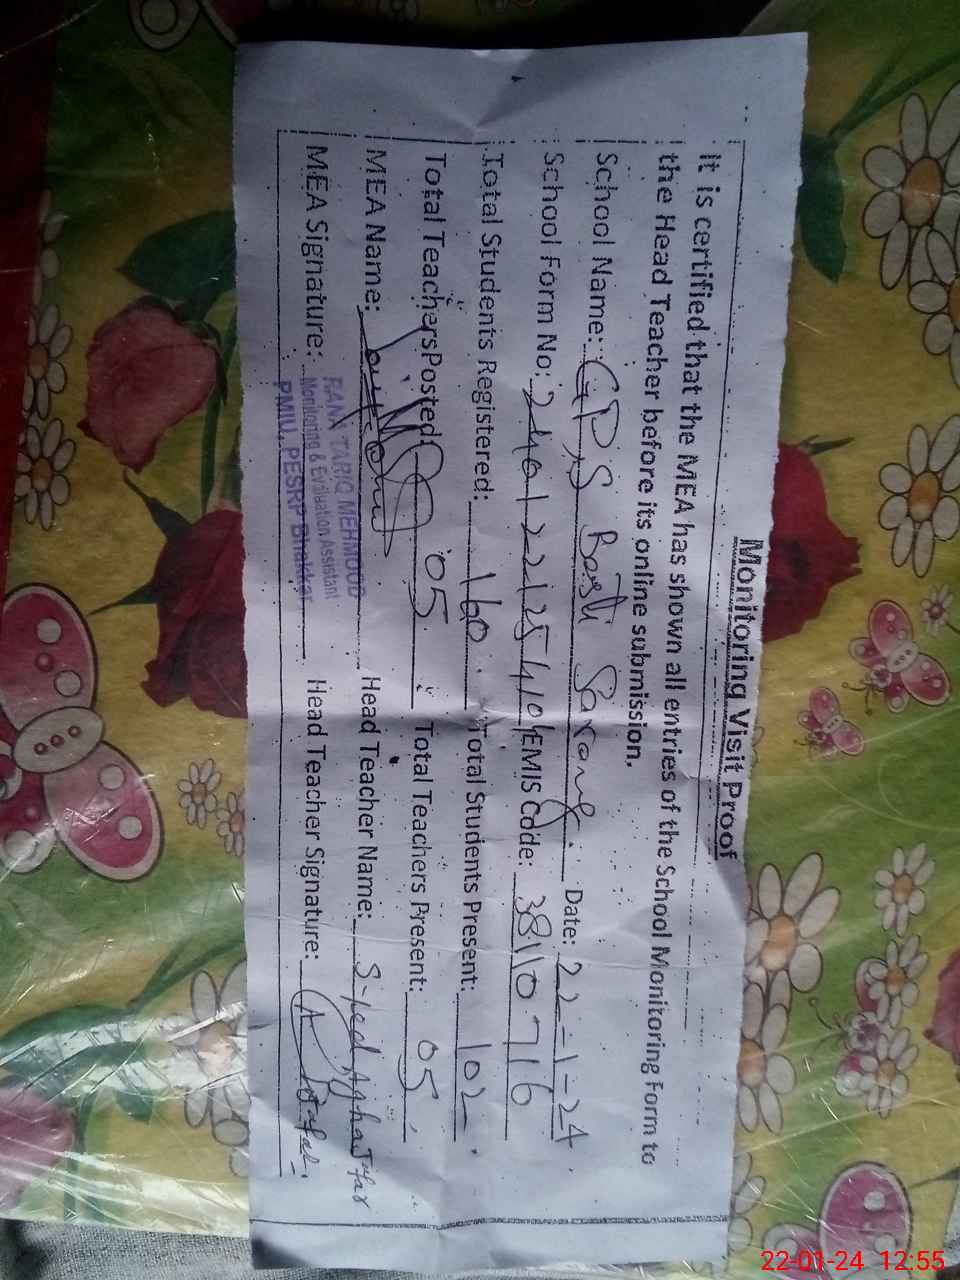 Monitoring Visit Proof
It is certified that the MEA has shown all entries of the School Monitoring Form to
the Head Teacher before its online submission.
School Name: G.P.S Basti Sarang. Date: 22-1-24
School Form No: EMIS Code: 38110716
Total Students Registered: 160. Total Students Present: 102
Total Teachers Posted: 05 Total Teachers Present: 05
MEA Name: Head Teacher Name: Agha Jafar
MEA Signature: Head Teacher Signature:
RANA TARIQ MEHMOOD
Monitoring & Evaluation Assistant
PMIU, PESRP Bhakkar
22-01-24 12:55